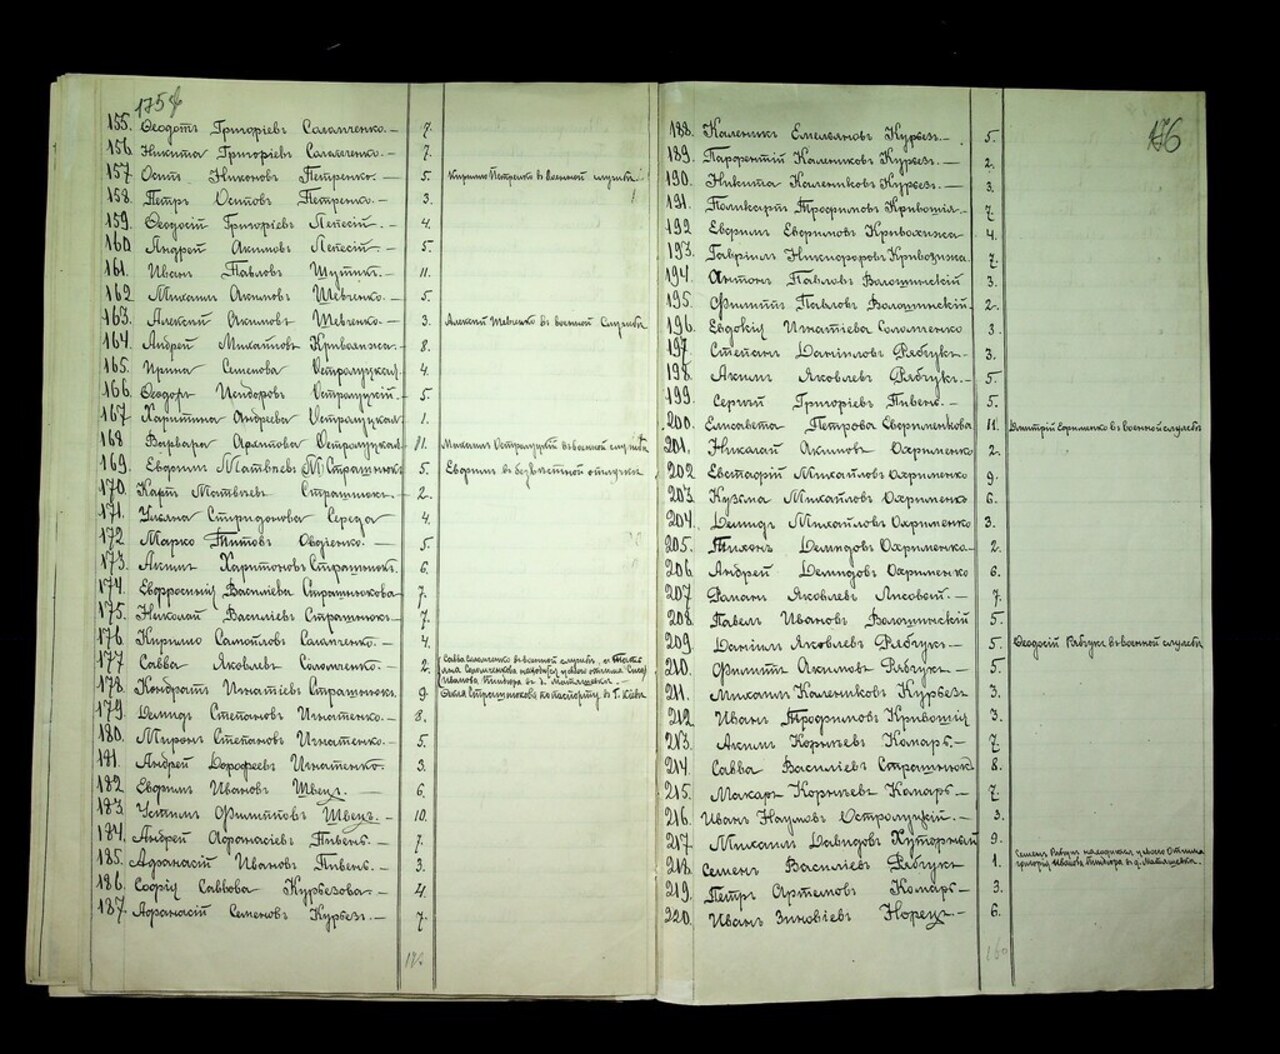 175
155. Ѳеодотъ Григоріевъ Саломченко.— 7.
156 Никита Григоріевъ Саломченко.— 7.
157 Осипъ Никоновъ Петренко.— 5. Кирилло Петренко въ военной службѣ.
158. Петръ Осиповъ Петренко.— 3.
159. Ѳеодосій Григоріевъ Лепесій.— 4.
160 Андрей Акимовъ Лепесій.— 5.
161. Иванъ Павловъ Шутикъ.— 11.
162 Михаилъ Акимовъ Шевченко.— 5.
163. Алексѣй Акимовъ Шевченко.— 3. Алексѣй Шевченко въ военной службѣ
164. Андрей Михайловъ Кривохижа. 8.
165. Ирина Семенова Остролуцкая. 4.
166. Ѳеодоръ Исидоровъ Остролуцкій.— 5.
167 Харитина Андреева Остролуцкая 1.
168 Варвара Архипова Остролуцкая 11. Михаилъ Остролуцкій въ военной службѣ
169. Евфимъ Матвѣевъ Страшнюкъ 5. Евфимъ въ безвѣстной отлучкѣ
170. Карпъ Матвѣевъ Страшнюкъ.— 2.
171. Ульяна Спиридонова Середа 4.
172 Марко Титовъ Овдіенко.— 5.
173. Акимъ Харитоновъ Страшнюкъ. 6.
174. Евфросинія Василіева Страшнюкова 7.
175. Николай Василіевъ Страшнюкъ— 7.
176 Кирилло Самойловъ Саломченко.— 4.
177 Савва Яковлевъ Соломченко.— 2. Савва Соломченко въ военной службѣ, а Тать
яна Соломченкова находится у своего отчима Семе
Иванова Пивовара въ д. Матяшевкѣ.—
178. Кондратъ Игнатіевъ Страшнюкъ. 9. Ѳекла Страшнюкова по паспорту въ г. Кіевѣ
179. Демидъ Степановъ Игнатенко.— 8.
180. Миронъ Степановъ Игнатенко.— 5.
181. Андрей Дорофеевъ Игнатенко. 3.
182 Евфимъ Ивановъ Швецъ.— 6.
183. Устимъ Филипповъ Швецъ.— 10.
184. Андрей Афанасіевъ Пивень.— 7.
185. Афанасій Ивановъ Пивень.— 3.
186. Софія Саввова Курьезова.— 4.
187. Афанасій Семеновъ Курьезъ.— 7.
176
188. Каленикъ Емельяновъ Курьезъ.— 5.
189. Парфентій Калениковъ Курьезъ.— 2.
190. Никита Калениковъ Курьезъ.— 3.
191. Поликарпъ Трофимовъ Кривошія.— 7.
192 Евфимъ Евфимовъ Кривохижа 4.
193. Гавріилъ Никифоровъ Кривохижа. 7.
194. Антонъ Павловъ Волошинскій 3.
195. Филиппъ Павловъ Волошинскій. 2.
196. Евдокія Игнатіева Соломченко 3.
197. Степанъ Даніиловъ Рябчукъ.— 3.
198. Акимъ Яковлевъ Рябчукъ.— 5.
199. Сергій Григоріевъ Пивень.— 5.
200. Елисавета Петрова Евфименкова 11. Дмитрій Ефрименко въ военной службѣ
201. Николай Акимовъ Охрименко 2.
202 Евстафій Михайловъ Охрименко 9.
203. Кузьма Михайловъ Охрименко 6.
204. Демидъ Михайловъ Охрименко 3.
205. Тихонъ Демидовъ Охрименко. 2.
206 Андрей Демидовъ Охрименко 6.
207 Романъ Яковлевъ Лисовой.— 7.
208 Павелъ Ивановъ Волошинскій 5.
209. Даніилъ Яковлевъ Рябчукъ.— 5. Ѳеодосій Рябчукъ въ военной службѣ
210. Филиппъ Акимовъ Рябчукъ.— 5.
211. Михаилъ Калениковъ Курьезъ 3.
212 Иванъ Трофимовъ Кривошія 3.
213. Акимъ Корнѣевъ Комаръ.— 7
214. Савва Василіевъ Страшнюкъ 8.
215. Макаръ Корнѣевъ Комаръ.— 7.
216. Иванъ Наумовъ Остролуцкій.— 3.
217 Михаилъ Давидовъ Хуторный 9.
218. Семенъ Василіевъ Рябчукъ 1. Семенъ Рябчукъ находится у своего Отчима
Григорія Иванова Пивовара въ д. Матяшевкѣ.
219. Петръ Артемовъ Комаръ— 3.
220. Иванъ Зиновіевъ Норецъ.— 6.
160